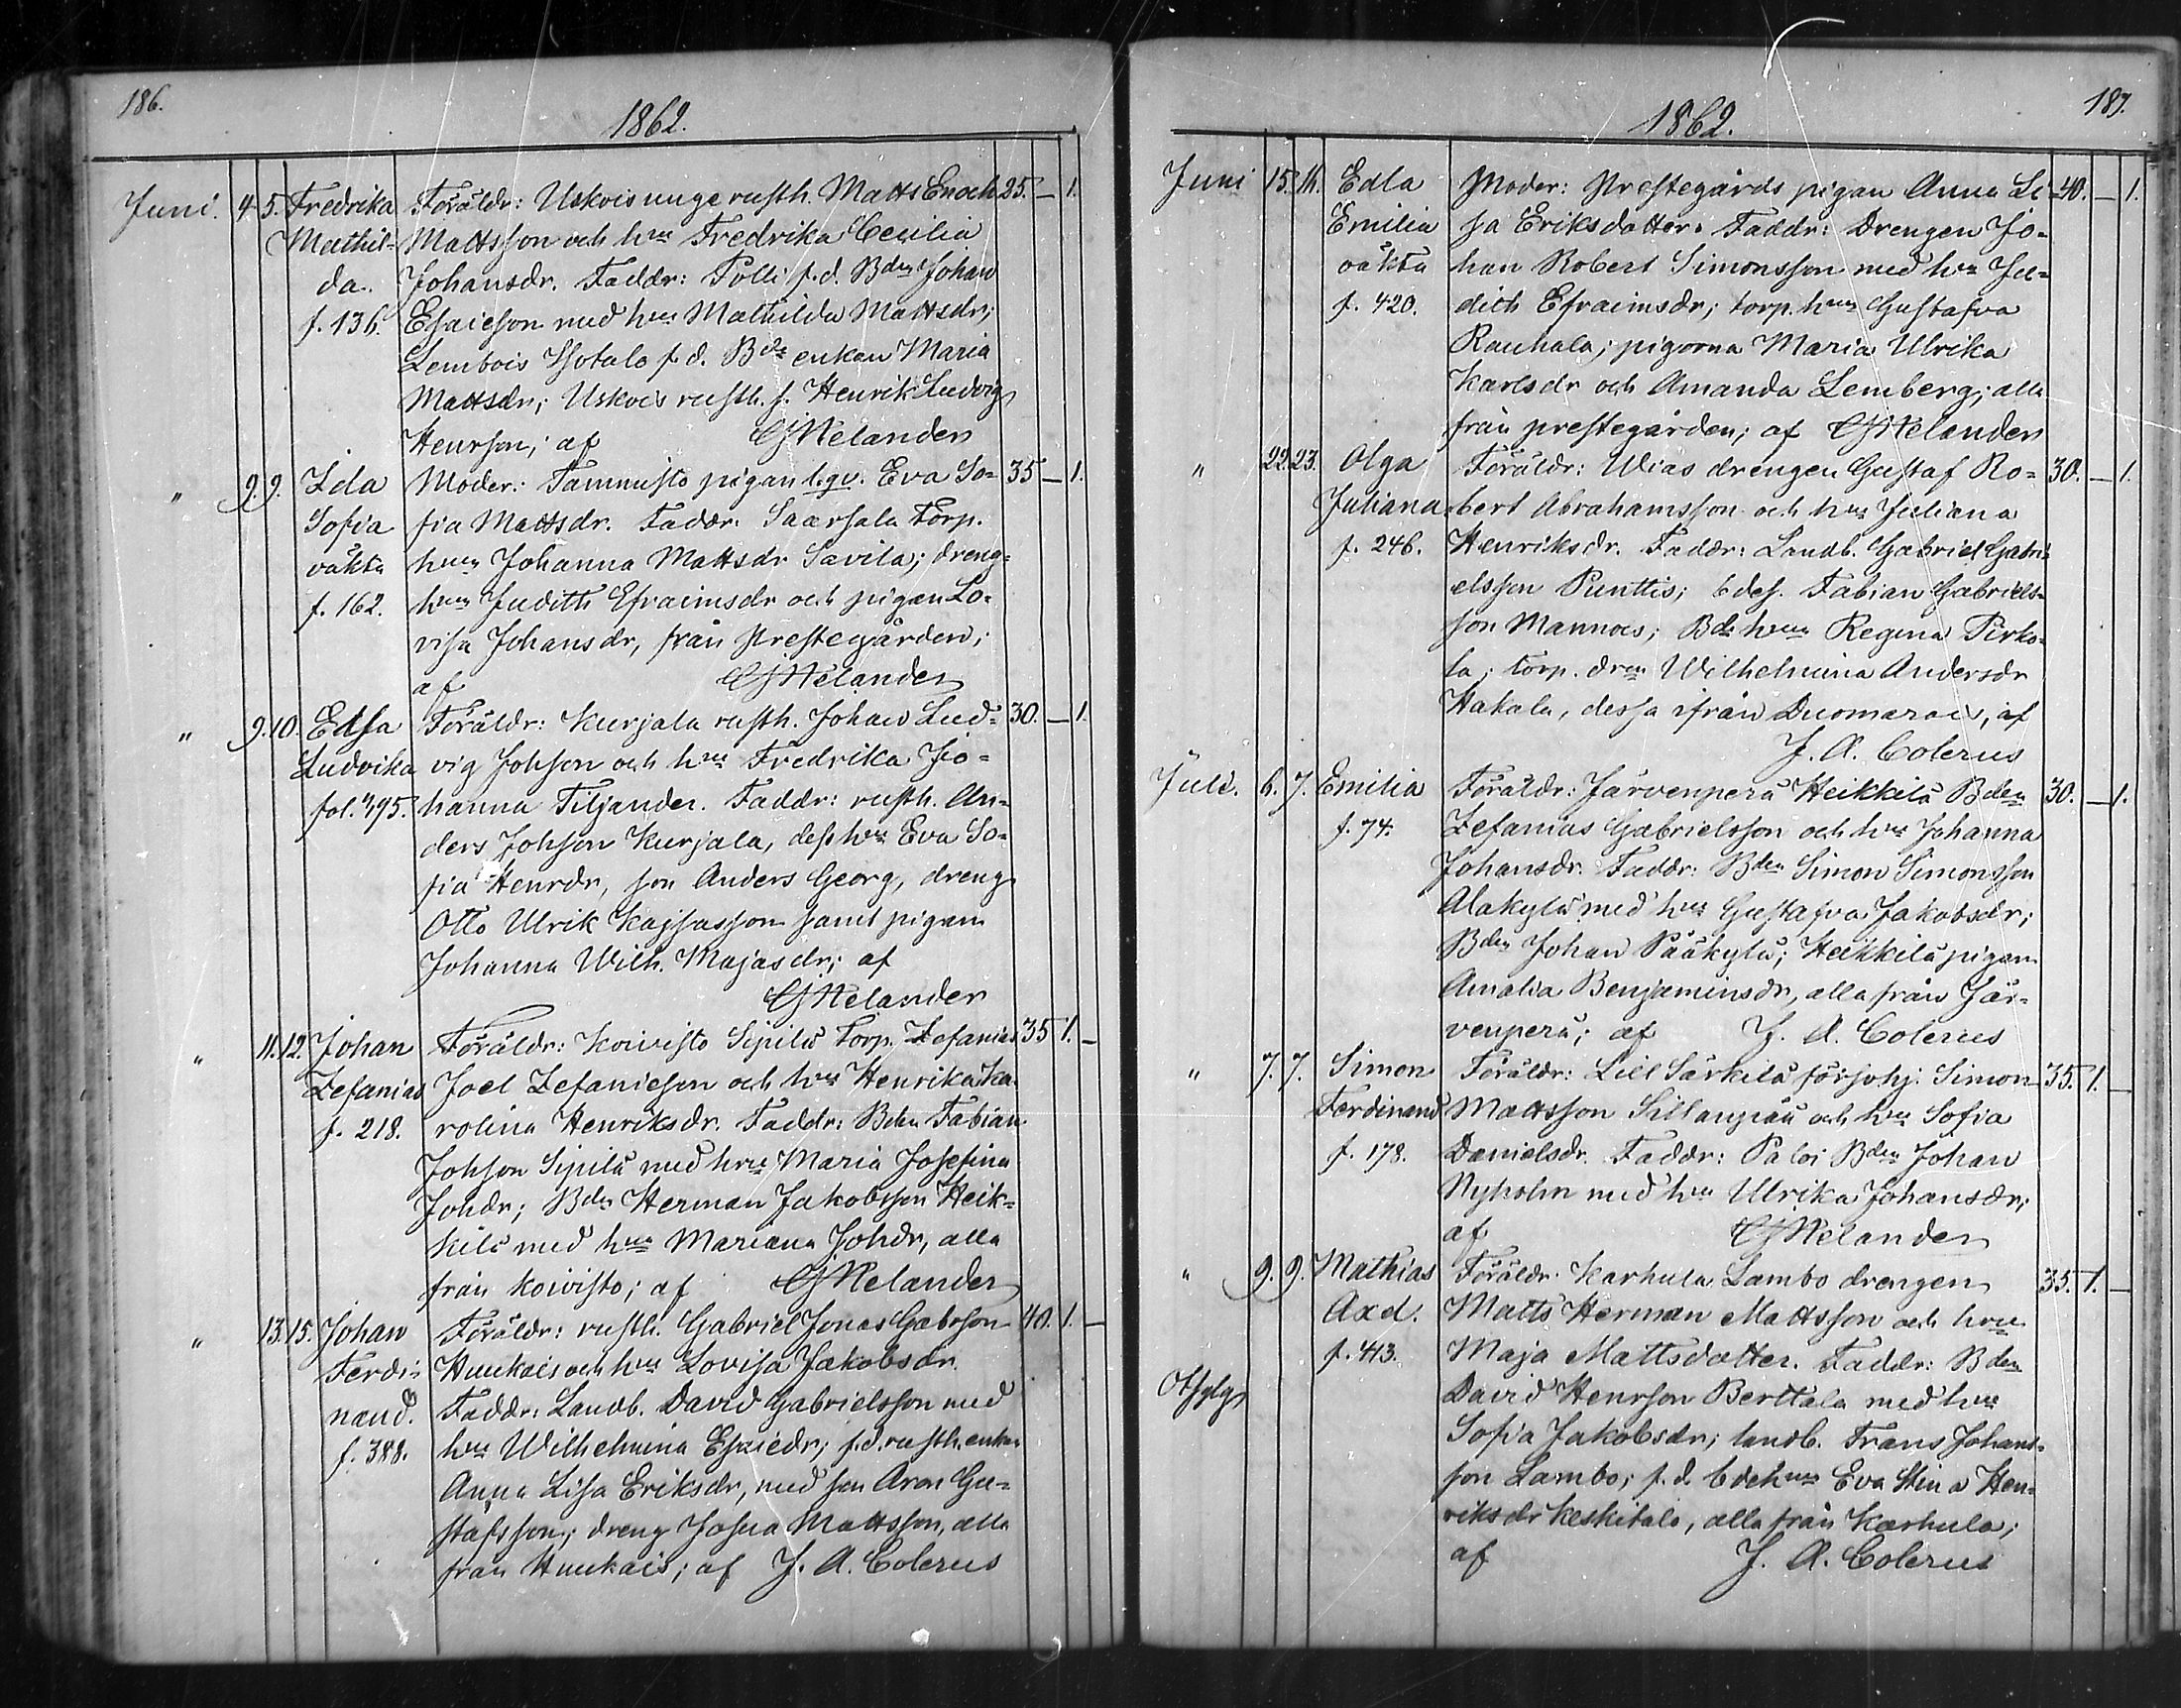 186.
1862.
Juni. 4. 5. Fredrika Föräldr: Uskois unge rusth. Matts Enoch 25. — 1.
Mathil- Mattsson och hu Fredrika Cecilia
da. Johansdr. Faddr: Polli f.d. Bden Johan
f. 136. Esaieson med hu Mathilda Mattsdr;
Lembois Isotalo f.d. Bde enkan Maria
Mattsdr; Uskois rusth. s. Henrik Ludvig
Henrson; af CJHelander
" 9. 9. Ida Moder: Tammisto pigan l.qv. Eva So- 35 — 1.
Sofia fia Mattsdr. Faddr: Saarsala Torp.
oäkta hun Johanna Mattsdr Savila; dreng-
f. 162. hun Judith Efraimsdr och pigan Lo-
visa Johansdr, från Prestegården;
af CJHelander
" 9. 10. Edla Föräldr: Kurjala rusth. Johan Lud- 30. — 1.
Ludvika vig Johsson och hu Fredrika Jo-
fol. 395. hanna Tiljander. Faddr: rusth. An-
ders Johsson Kurjala, dess hu Eva So-
fia Henrdr, son Anders Georg, dreng
Otto Ulrik Kajsasson samt pigan
Johanna Wilh. Majasdr; af
CJHelander
" 11. 12. Johan Föräldr: Koivisto Sipilä Torp. Zefanias 35 1. —
Zefanias Joel Zefanieson och hu Henrika Ka
f. 218. rolina Henriksdr. Faddr: Bden Fabian
Johsson Sipilä med hu Maria Josefina
Johdr; Bden Herman Jakobsson Heik-
kilä med hu Mariana Johdr, alla
från Koivisto; af CJHelander
" 13. 15. Johan Föräldr: rusth. Gabriel Jonas Gabrson 40. 1. —
Ferdi- Huukais och hu Lovisa Jakobsdr
nand. Faddr: Landb. David Gabrielsson med
f. 388. hu Wilhelmina Esaiedr; f.d. rusth. enkan
Anna Lisa Eriksdr, med son Aron Gu-
stafsson; dreng Josua Mattsson, alla
från Huukais; af J. A. Colerus
187.
1862.
Juni 15. 16. Edla Moder: Prestegårds pigan Anna Li- 40. — 1.
Emilia sa Eriksdotter. Faddr: Drengen Jo-
oäkta han Robert Simonsson med hu Ju-
f. 420. dith Efraimsdr; torp. hun Gustafva
Rauhala; pigorna Maria Ulrika
Karlsdr och Amanda Lemberg; alla
från prestegården; af CJHelander
" 22. 23. Olga Föräldr: Uias drengen Gustaf Ro- 30. — 1.
Juliana bert Abrahamsson och hu Juliana
f. 246. Henriksdr. Faddr: Landb. Gabriel Gabri-
elsson Punttis; bdes. Fabian Gabriels-
son Mannois; Bde hun Regina Pirko-
la; torp. dren Wilhelmina Andersdr
Hakala, dessa ifrån Duomarais, af
J. A. Colerus
Juli. 6. 7. Emilia Föräldr: Järvenperä Heikkilä Bden 30. — 1.
f. 74. Zefanias Gabrielsson och hu Johanna
Johansdr. Faddr: Bden Simon Simonsson
Alakylä med hu Gustafva Jakobsdr;
Bden Johan Pääkylä; Heikkilä pigan
Amalia Benjaminsdr, alla från Jär-
venperä; af J. A. Colerus
" 7. 7. Simon Föräldr: Lill Särkilä försohj. Simon 35. 1. —
Ferdinand Mattsson Sillanpää och hu Sofia
f. 178. Danielsdr. Faddr: Paloi Bden Johan
Nyholm med hu Ulrika Johansdr;
af CJHelander
" 9. 9. Mathias Föräldr: Karhula Lambo drengen 35. 1. —
Axel. Matts Herman Mattsson och hu
f. 413. Maja Mattsdotter. Faddr: Bden
David Henrson Berttala med hu
Sofia Jakobsdr; landb. Frans Johans-
son Lambo; f.d. bdehun Eva Stina Hen-
riksdr Keskitalo, alla från Karhula;
af J. A. Colerus